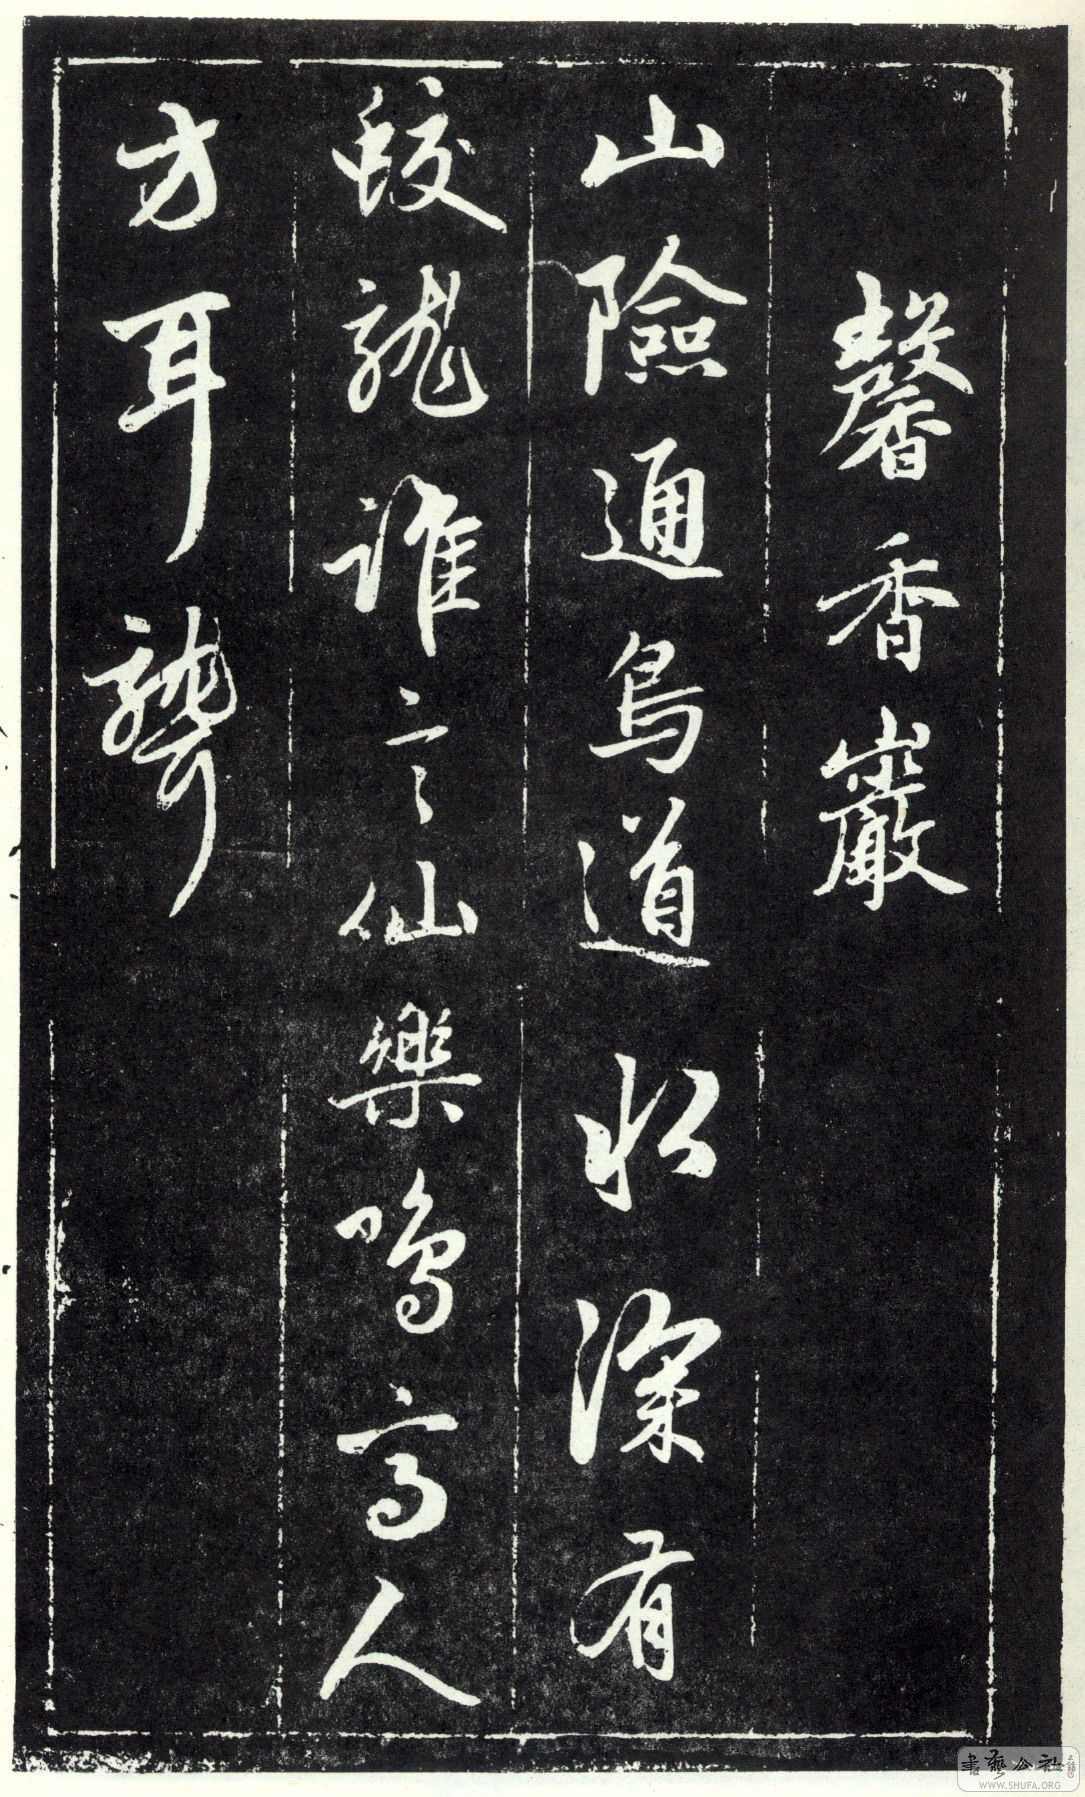 馨香巖
山險通鳥道松深有
蛟龍誰言仙樂鳴高人
方耳聾
書藝公社
WWW.SHUFA.ORG